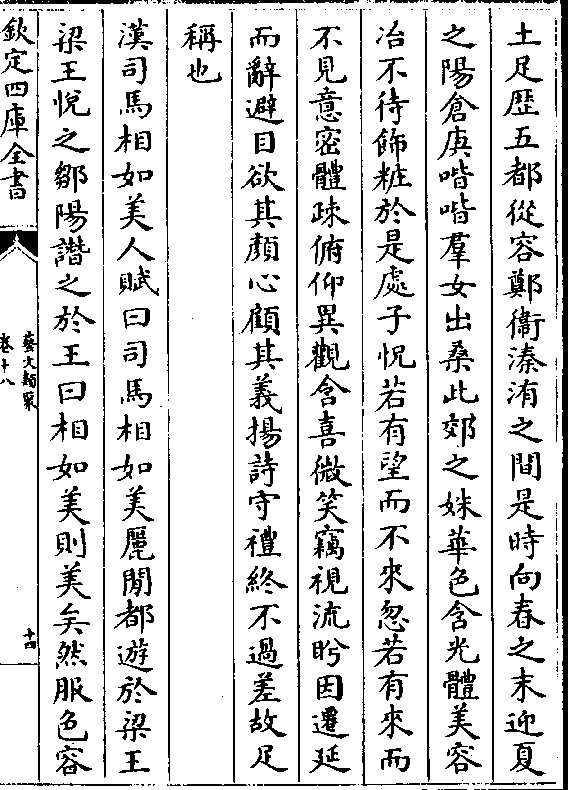 土足歴五都從容鄭衛溱洧之間是時向春之末迎夏
之陽倉庚喈喈羣女出桑此郊之姝華色含光體美容
冶不待飾粧於是處子怳若有望而不來忽若有來而
不見意密體疎俯仰異觀含喜微笑竊視流眄因遷延
而辭避目欲其顏心顧其義揚詩守禮終不過差故足
稱也
漢司馬相如美人賦曰司馬相如美麗閒都遊於梁王
梁王悅之鄒陽譖之於王曰相如美則美矣然服色容
欽定四庫全書
藝文類聚
卷十八
十四